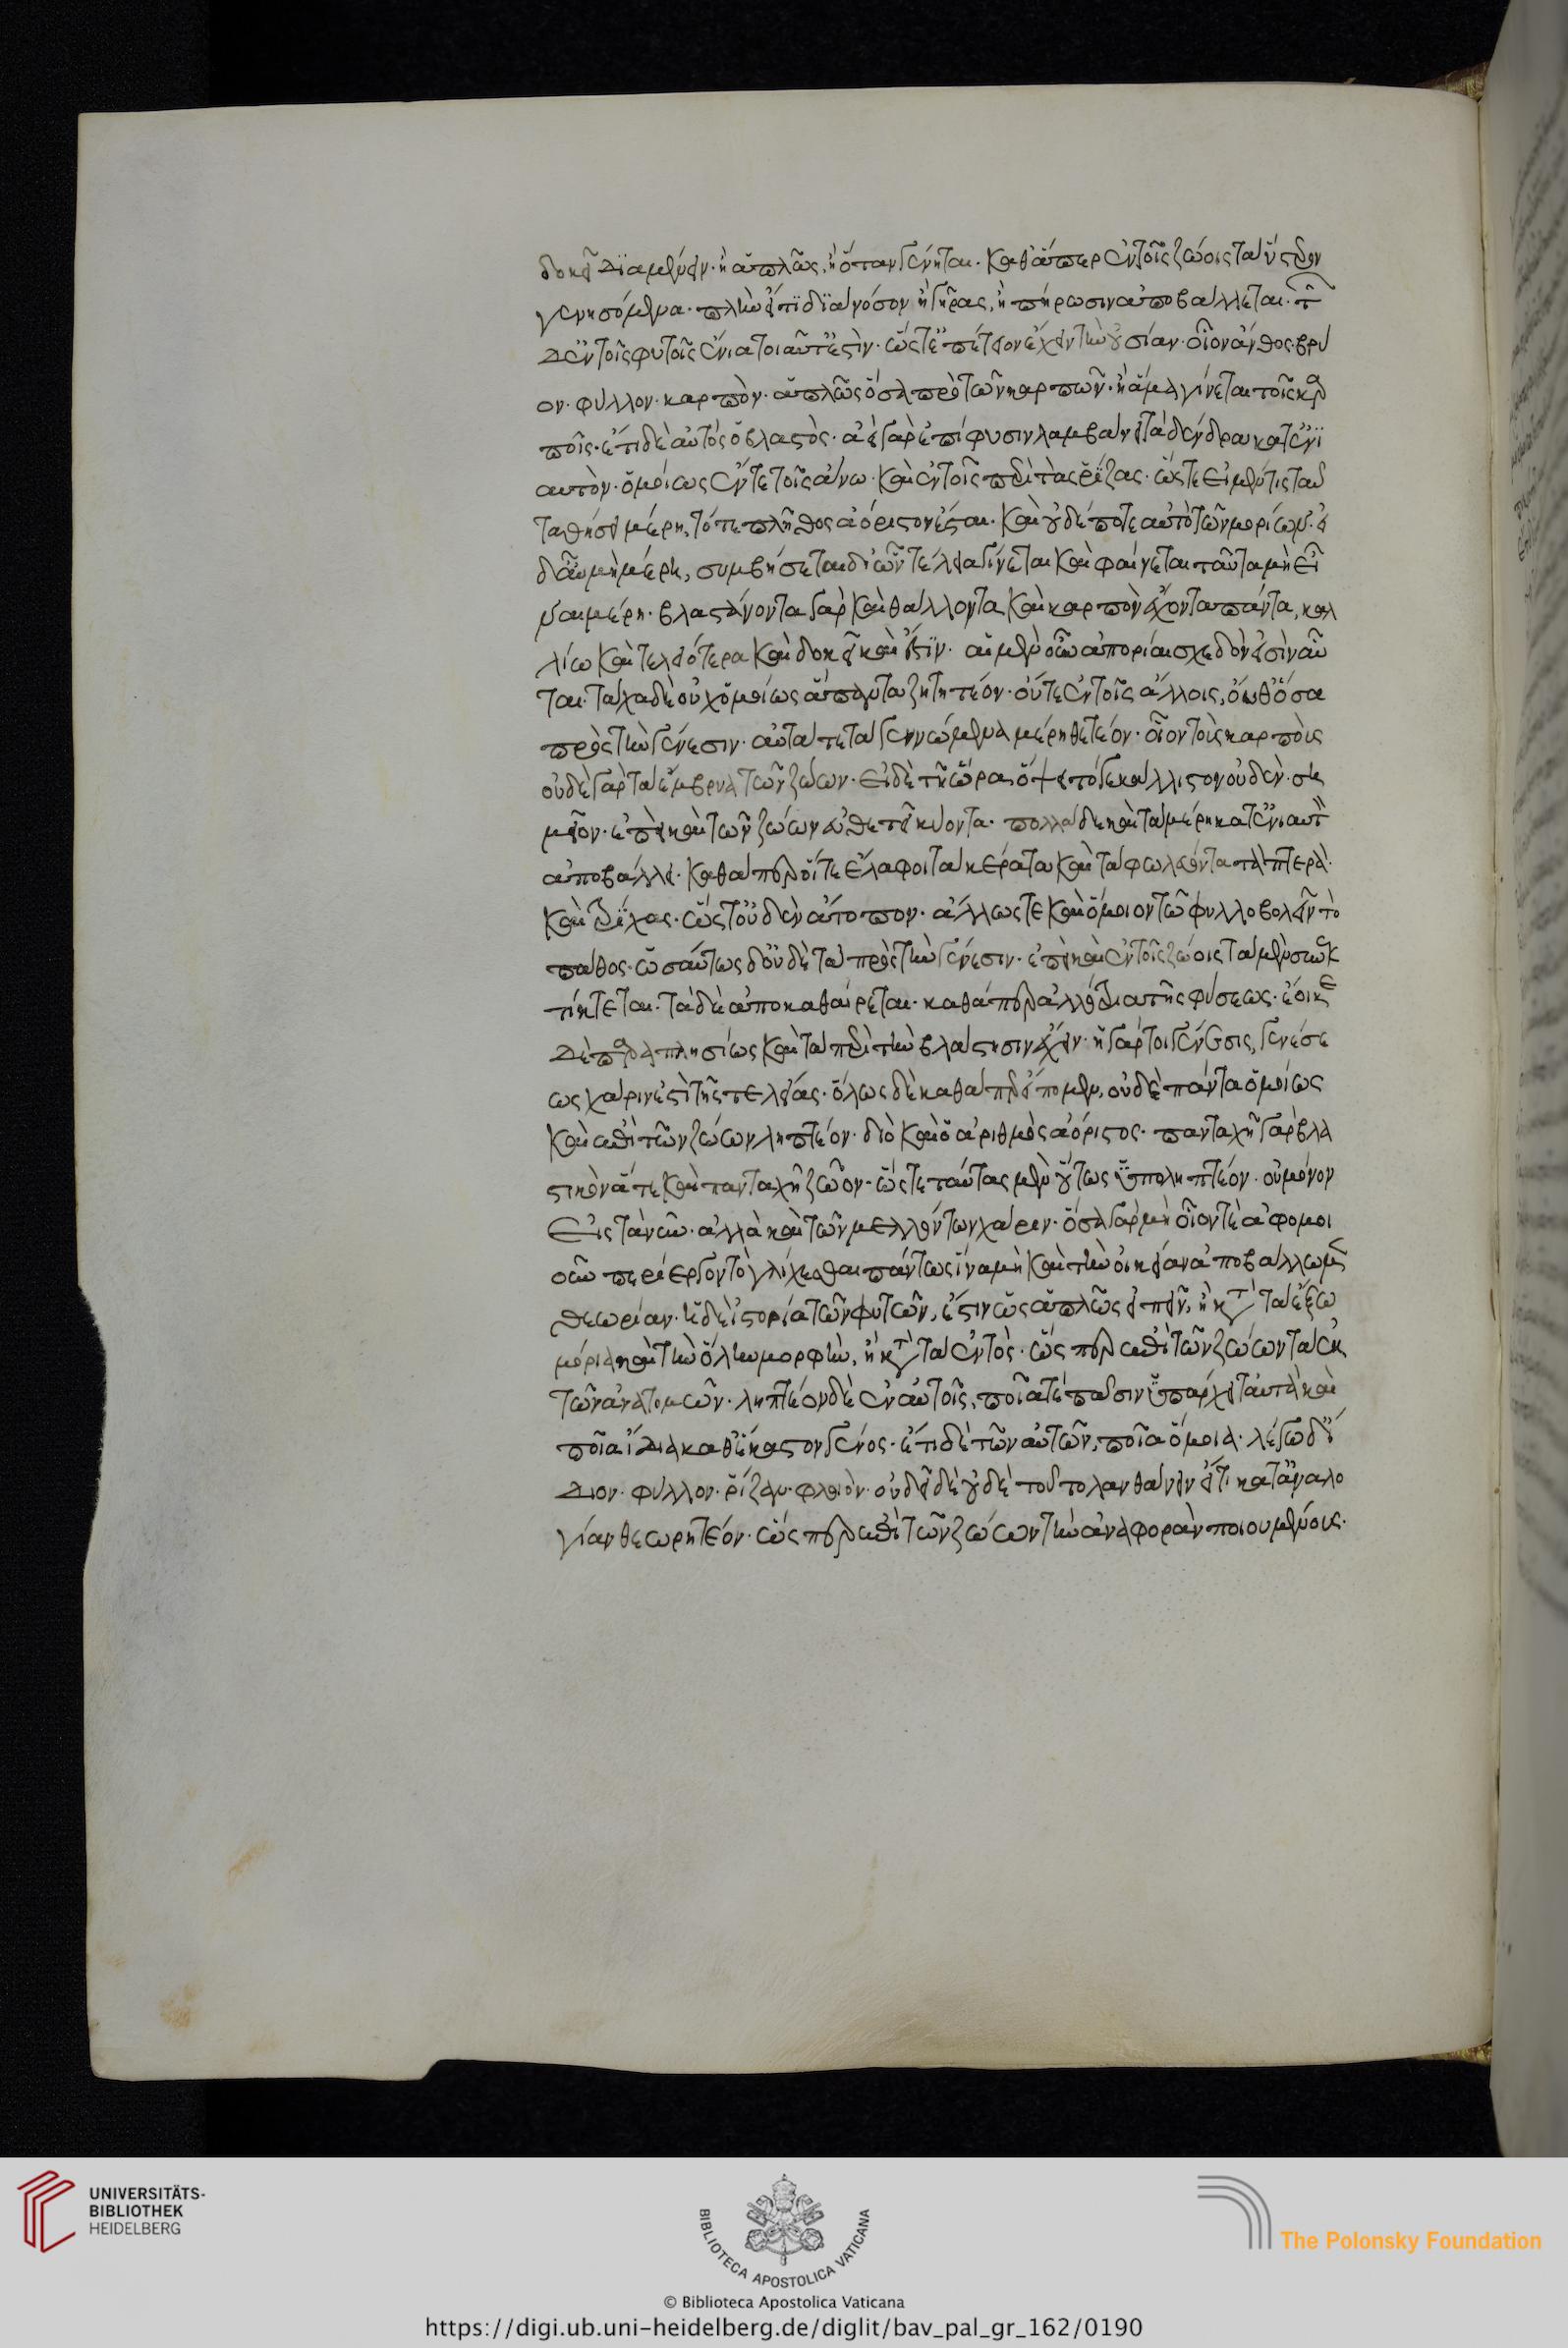 δοκεῖ διαμένειν· ἢ ἁπλῶς, ἢ ὅταν γένηται. καθάπερ ἐν τοῖς ζώοις τὰ ὕστερον
γενησόμενα· πλὴν εἴ τι διὰ νόσον ἢ γῆρας, ἢ πήρωσιν ἀποβάλλεται· τῶν
δ' ἐν τοῖς φυτοῖς ἔνια τοιαῦτ' ἐστὶν· ὥστ' ἐπέτειον ἔχειν τὴν οὐσίαν· οἷον ἄνθος· βρύ
ον· φύλλον· καρπὸν· ἁπλῶς ὅσα πρὸ τῶν καρπῶν· ἢ ἅμα γίνεται τοῖς καρ
ποῖς· ἔτι δὲ αὐτὸς ὁ βλαστὸς· ἀεὶ γὰρ ἐπίφυσιν λαμβάνει τὰ δένδρα κατ' ἐνι
αυτὸν· ὁμοίως ἔν τε τοῖς ἄνω· καὶ ἐν τοῖς περὶ τὰς ῥίζας· ὥστε εἰ μέν τις ταῦ
τα θήσει μέρη, τό τε πλῆθος ἀόριστον ἔσται· καὶ οὐδέποτε αὐτὸ τῶν μορίων· εἰ
δ' αὖ μὴ μέρη, συμβήσεται δι' ὧν τέλεια γίνεται καὶ φαίνεται ταῦτα μὴ εἶ
ναι μέρη· βλαστάνοντα γὰρ καὶ θάλλοντα καὶ καρπὸν ἔχοντα πάντα, καλ
λίω καὶ τελειότερα καὶ δοκεῖ καὶ ἔστιν· αἱ μὲν οὖν ἀπορίαι σχεδὸν εἰσὶν αὗ
ται· τάχα δὲ οὐχ ὁμοίως ἅπαντα ζητητέον· οὔτε ἐν τοῖς ἄλλοις, οὔθ' ὅσα
πρὸς τὴν γένεσιν· αὐτά τε τὰ γεννώμενα μέρη θετέον· οἷον τοὺς καρπούς
οὐδὲ γὰρ τὰ ἔμβρυα τῶν ζώων· εἰ δὲ τῆ ὥρα ὄψει τό γε κάλλιστον οὐδὲν· ση
μεῖον· ἐπεὶ καὶ τῶν ζώων εὐθετεῖ κύοντα· πολλὰ δὲ καὶ τὰ μέρη κατ' ἐνιαυτὸν
ἀποβάλλει· καθάπερ οἵ τε ἔλαφοι τὰ κέρατα καὶ τὰ φωλεύοντα τὰ πτερὰ·
καὶ τρίχας· ὥστ' οὐδὲν ἄτοπον· ἄλλως τε καὶ ὅμοιον τῶ φυλλοβολεῖν τὸ
πάθος· ὡσαύτως δ' οὐδὲ τὰ πρὸς τὴν γένεσιν· ἐπεὶ καὶ ἐν τοῖς ζώοις τὰ μὲν συνεκ
τίκτεται· τὰ δὲ ἀποκαθαίρεται· καθάπερ ἀλλότρια τῆς φύσεως· ἔοικε
δὲ παραπλησίως καὶ τὰ περὶ τὴν βλάστησιν ἔχειν· ἡ γάρ τοι γένεσις, γενέσε
ως χάριν ἐστὶ τῆς τελείας· ὅλως δὲ καθάπερ εἴπομεν, οὐδὲ πάντα ὁμοίως
καὶ ἐπὶ τῶν ζώων ληπτέον· διὸ καὶ ὁ ἀριθμὸς ἀόριστος· πανταχῆ γὰρ βλα
στικὸν ἅτε καὶ πανταχῆ ζῶον· ὥστε ταῦτα μὲν οὕτως ὑποληπτέον· οὐ μόνον
εἰς τὰ νῦν· ἀλλὰ καὶ τῶν μελλόντων χάριν· ὅσα γὰρ μὴ οἷόν τε ἀφομοι
οῦν περίεργον τὸ γλίχεσθαι πάντως ἵνα μὴ καὶ τὴν οἰκείαν ἀποβάλλωμεν
θεωρίαν· ἡ δὲ ἱστορία τῶν φυτῶν, ἔστιν ὡς ἁπλῶς εἰπεῖν, ἢ κατὰ τὰ ἔξω
μόρια καὶ τὴν ὅλην μορφὴν, ἢ κατὰ τὰ ἐντὸς· ὥσπερ ἐπὶ τῶν ζώων τὰ ἐκ
τῶν ἀνατομῶν· ληπτέον δὲ ἐν αὐτοῖς, ποῖά τε πᾶσιν ὑπάρχει ταὐτὰ καὶ
ποῖα ἴδια καθ' ἕκαστον γένος· ἔτι δὲ τῶν αὐτῶν, ποῖα ὅμοια· λέγω δ' οἷ
διον· φύλλον· ῥίζαν· φλοιὸν· οὐ δεῖ δὲ οὐδὲ τοῦτο λανθάνειν εἴ τι κατ' ἀναλο
γίαν θεωρητέον· ὥσπερ ἐπὶ τῶν ζώων τὴν ἀναφορὰν ποιουμένους·
UNIVERSITÄTS-
BIBLIOTHEK
HEIDELBERG
BIBLIOTECA APOSTOLICA VATICANA
The Polonsky Foundation
© Biblioteca Apostolica Vaticana
https://digi.ub.uni-heidelberg.de/diglit/bav_pal_gr_162/0190